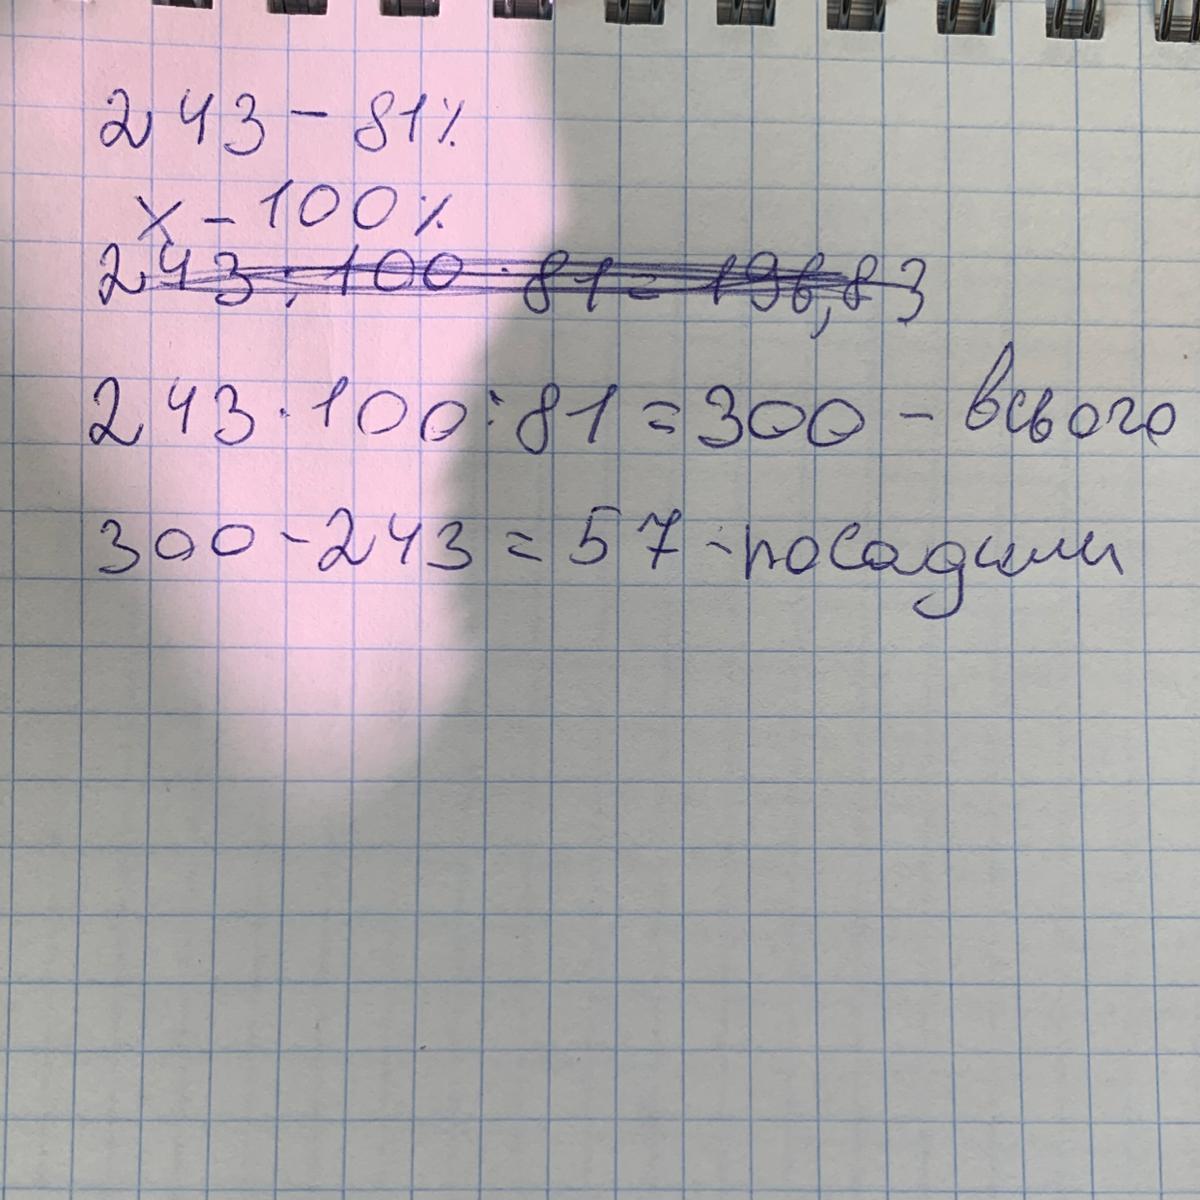 243 - 81%
x - 100%
243 : 100 · 81 = 196,83
243 · 100 : 81 = 300 - всього
300 - 243 = 57 - посадили